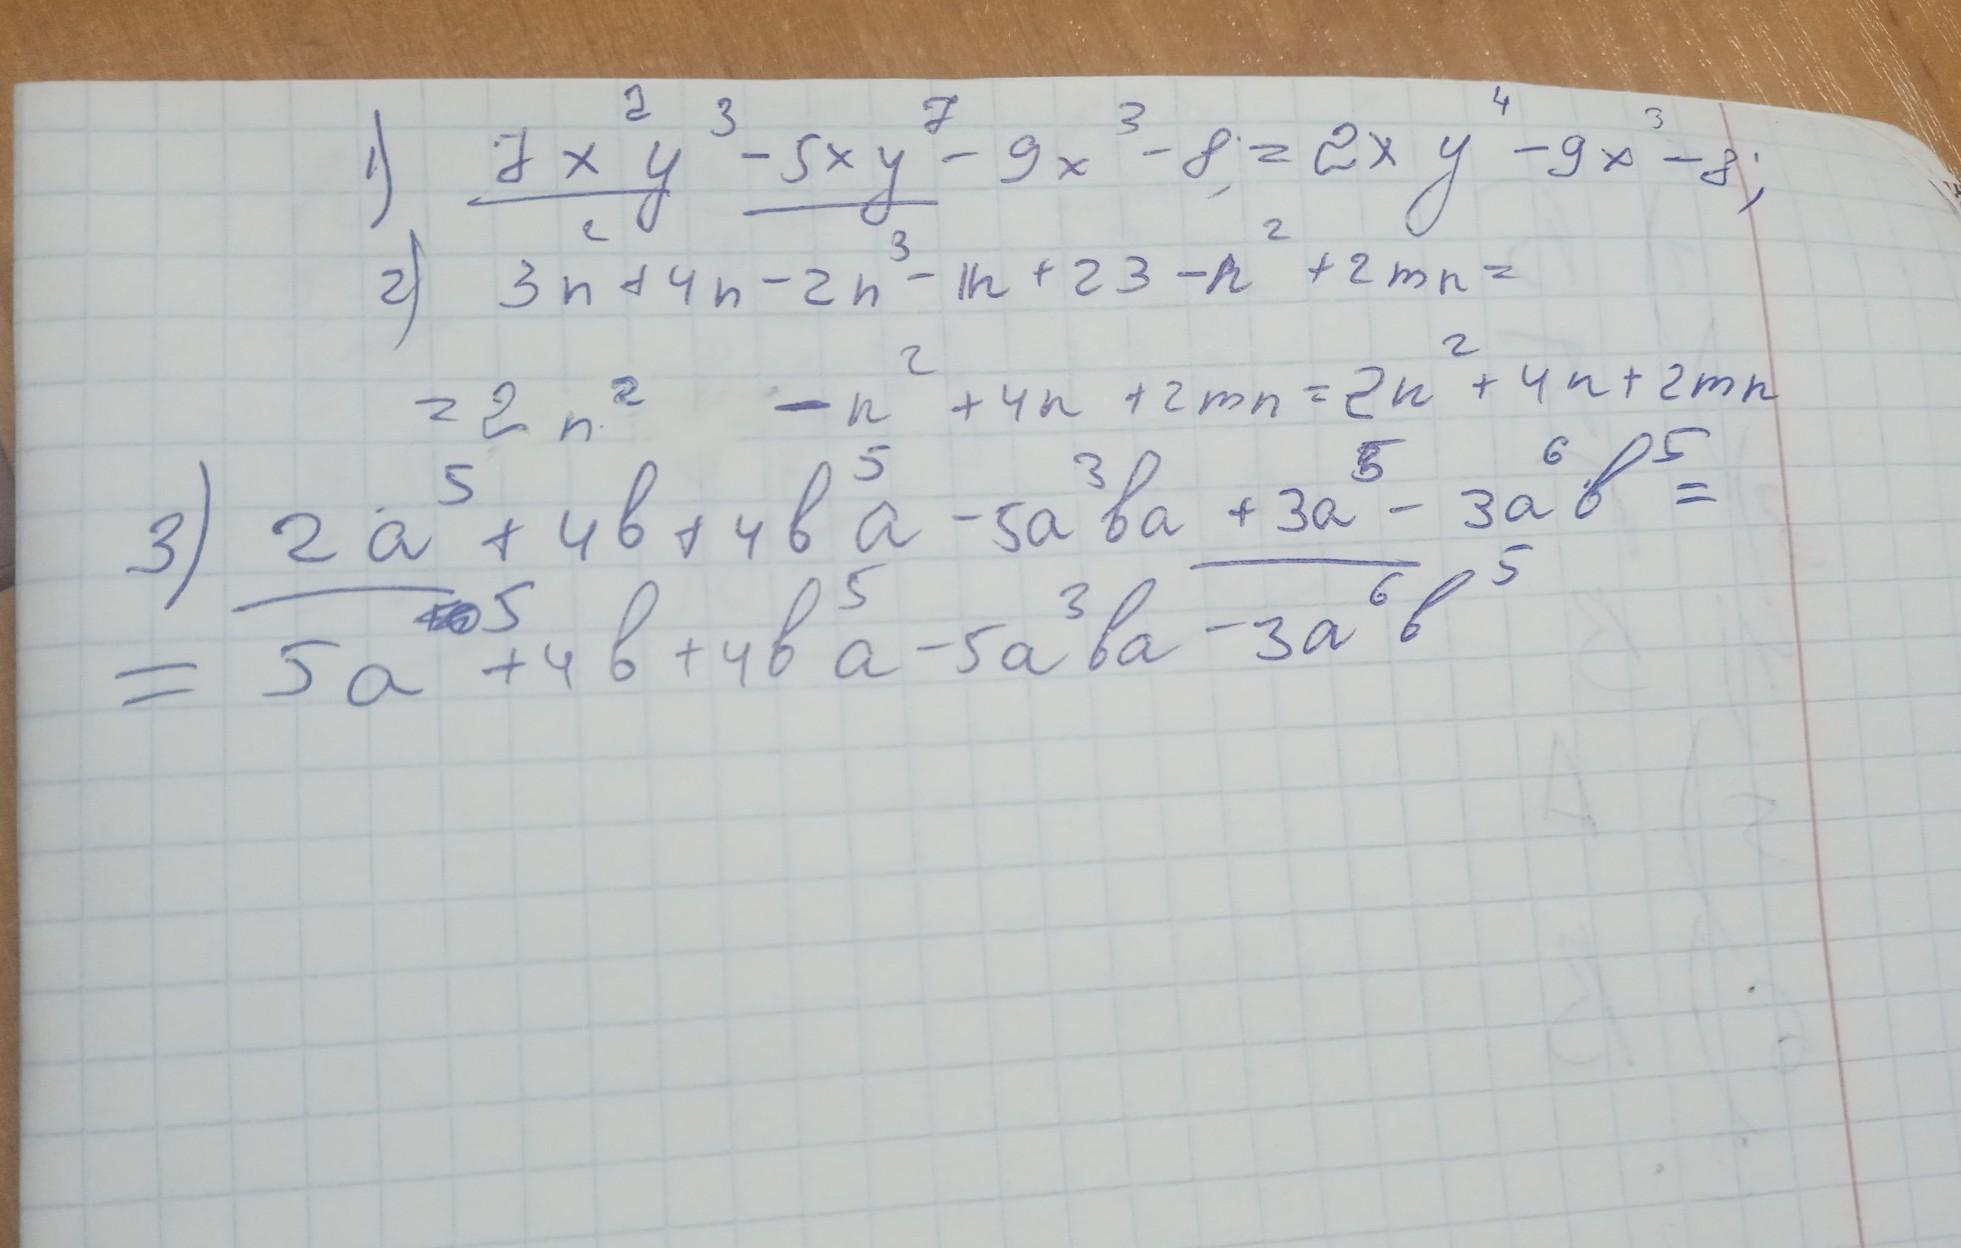 1) 7x²y³ - 5xy⁷ - 9x³ - 8; = 2xy⁴ - 9x³ - 8;
2) 3n² + 4n - 2n³ - 1n + 23 - n² + 2mn =
= 2n² - n² + 4n + 2mn = 2n² + 4n + 2mn
3) 2a⁵ + 4b + 4b⁵a - 5a³ba + 3a⁵ - 3a⁶b⁵ =
= 5a⁵ + 4b + 4b⁵a - 5a³ba - 3a⁶b⁵